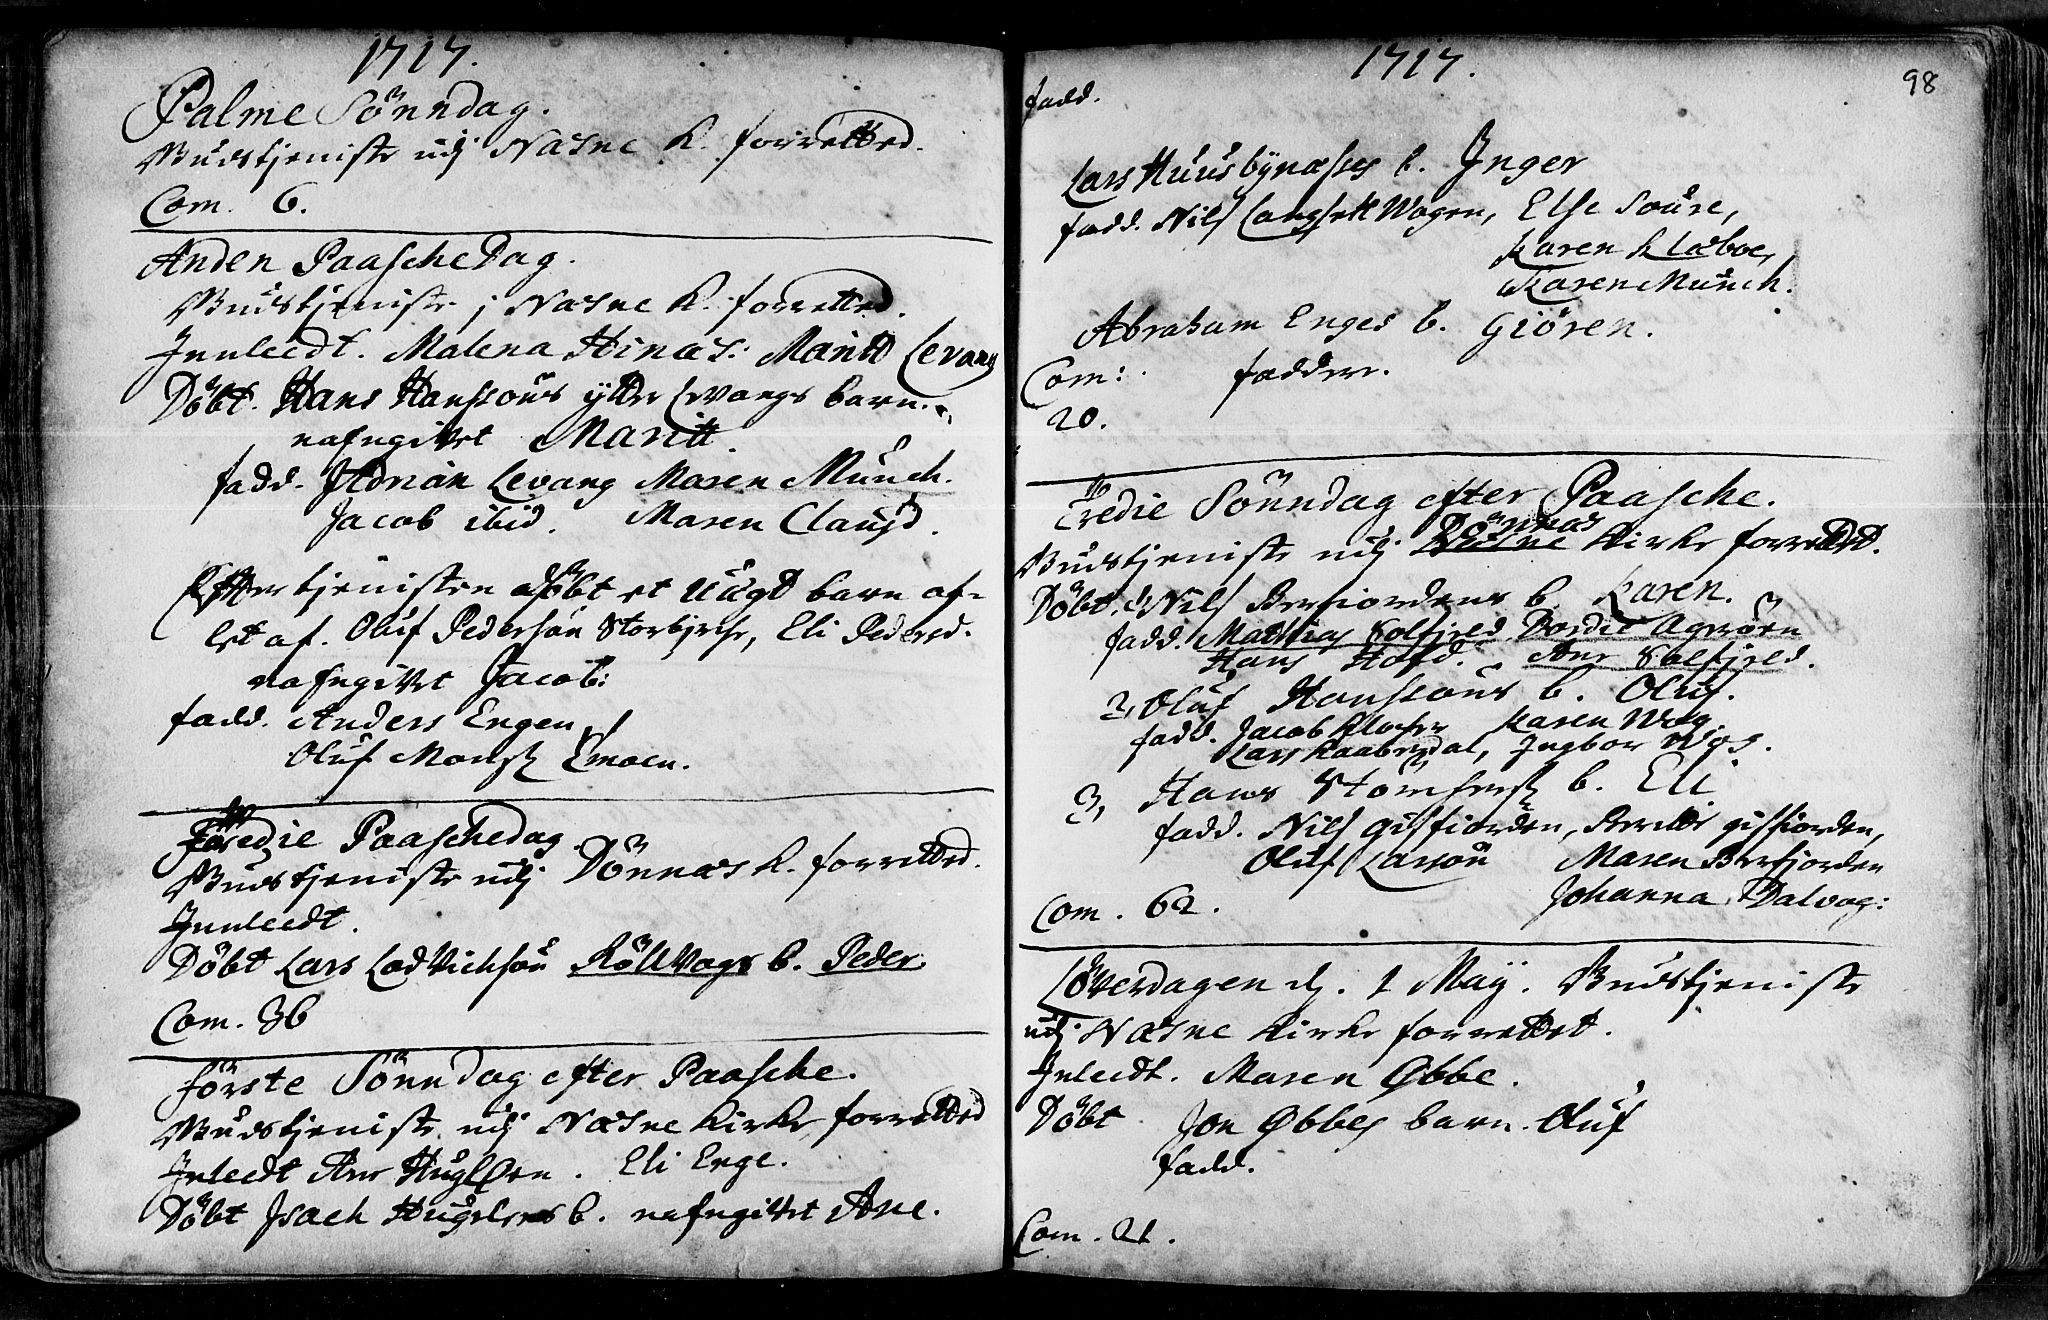 1717.
Palme Sönndag.
Gudstjeniste udj Næsne K. forretted.
Com. 6.
Anden Paasche Dag.
Gudstjeniste j Næsne K. forretted.
Innleedt. Malena Hinæs: Maritt Levang
Döbt. Hans Hanssøns ytter Levangs barn
nafngivet Maritt.
fadd. Adrian Levang Maren Münch.
Jacob ibid. Maren
Efter tjenisten döbt et uægt barn af-
let af. Oluf Pedersøn Eli Pedersd.
nafngivet Jacob:
fadd. Anders Engen
Oluf
Tredie Paaschedag
Gudstjeniste udj Dönnæs K. forretted.
Innleedt.
Döbt Lars Lodvichsøn Röllvogs b. Peder.
Com. 36
Förste Sönndag efter Paasche.
Gudstjeniste udj Næsne Kirke forretted
Inleedt Ane Huglöen. Eli Enge.
Döbt Isach b. nafngivet Ane.
1717.
98
fadd.
Lars Huusbynæsses b. Inger
fadd. Nils Langsett Wogen, Else
Karen Klæboe,
Karen Münch.
Abraham Enges b. Giören.
Com: faddere.
20.
Tredie Sönndag efter Paasche.
Gudstjeniste udj Dönnæs Kirke forretted.
Döbt. 1, Nils b. Karen.
fadd. Mathias Solfjeld, Dordie
Hans Ane Solfjeld.
2, Oluf Hanssøns b. Oluf.
fadd. Jacob Karen Wog.
Lars Ingbor Wog.
3, Hans b. Eli
fadd. Nils Gisfiorden, Berette Gisfiorden,
Oluf Larsøn Maren
Com. 62. Johanna Dalvog:
Löverdagen d. 1 Maÿ. Gudstjeniste
udj Næsne Kirke forrettet.
Inleedt. Maren Øbbe.
Döbt Jon Øbbes barn Oluf
fadd.
Com. 21.